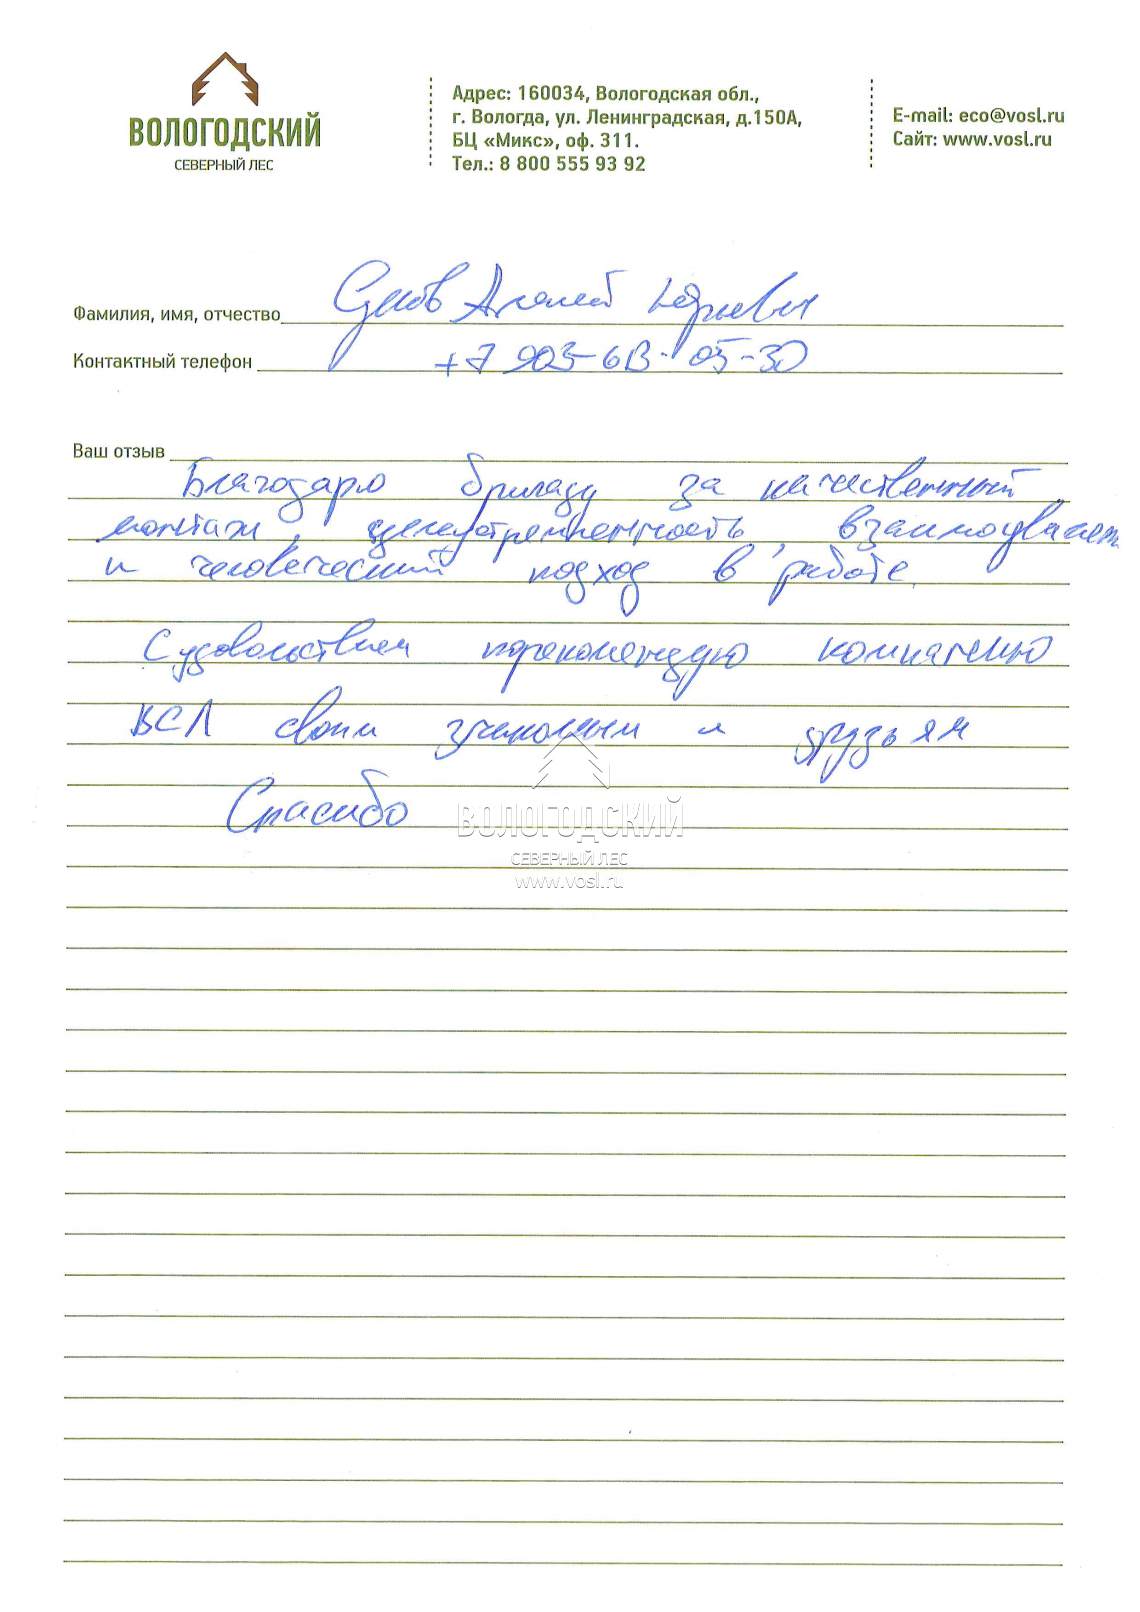 ВОЛОГОДСКИЙ
СЕВЕРНЫЙ ЛЕС
Адрес: 160034, Вологодская обл.,
г. Вологда, ул. Ленинградская, д.150А,
БЦ «Микс», оф. 311.
Тел.: 8 800 555 93 92
E-mail: eco@vosl.ru
Сайт: www.vosl.ru
Фамилия, имя, отчество Алексей Юрьевич
Контактный телефон +7 903-613-05-30
Ваш отзыв
Благодарю бригаду за качественный
монтаж, целеустремленность, взаимоуважен
и человеческий подход в работе.
С удовольствием порекомендую компанию
ВСЛ своим знакомым и друзьям
Спасибо
ВОЛОГОДСКИЙ
СЕВЕРНЫЙ ЛЕС
www.vosl.ru